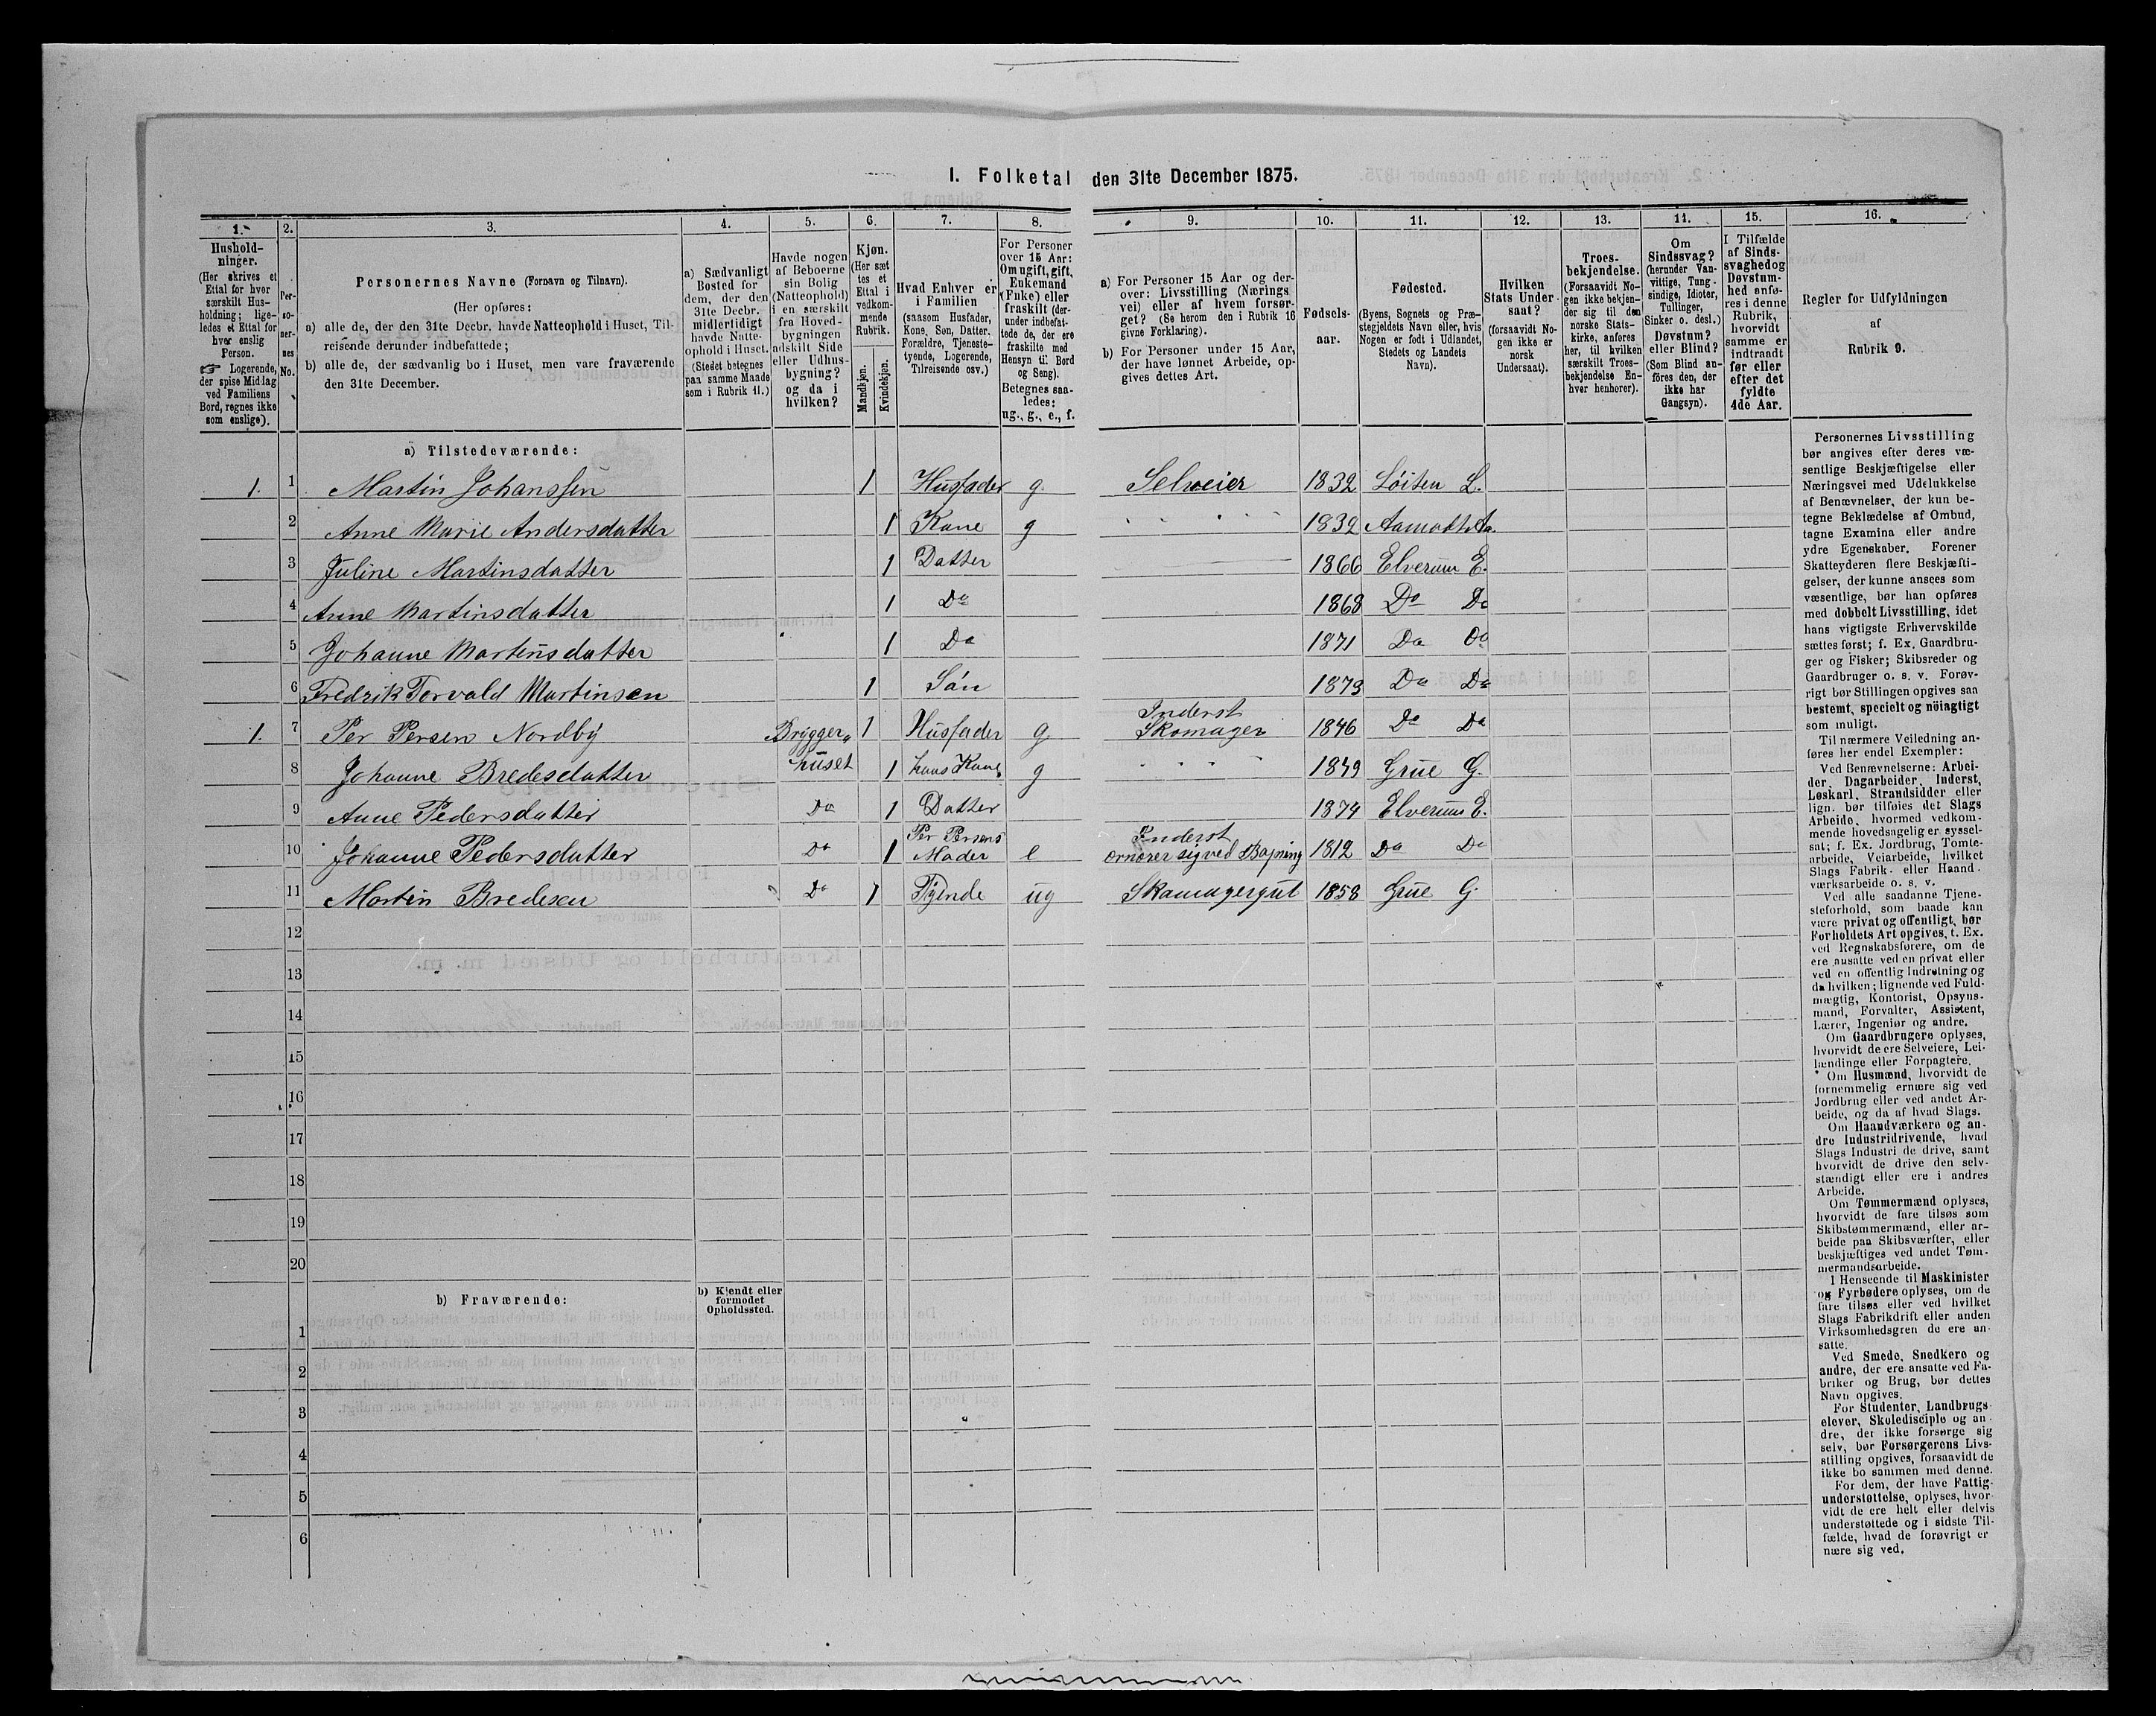 I. Folketal den 31te December 1875.
1. 2. 3. 4. 5. 6. 7. 8. 9. 10. 11. 12. 13. 14. 15. 16.
Hushold-
ninger.
(Her skrives et
Ettal for hver
særskilt Hus-
holdning; lige-
ledes et Ettal for
hver enslig
Person.
☞ Logerende,
der spise Middag
ved Familiens
Bord, regnes ikke
som enslige).
Per-
so-
ner-
nes
No.
Personernes Navne (Fornavn og Tilnavn).
(Her opføres:
a) alle de, der den 31te Decbr. havde Natteophold i Huset, Til-
reisende derunder indbefattede;
b) alle de, der sædvanlig bo i Huset, men vare fraværende
den 31te December.
a) Sædvanligt
Bosted for
dem, der den
31te Decbr.
midlertidigt
havde Natte-
ophold i Huset.
(Stedet betegnes
paa samme Maade
som i Rubrik 11.)
Havde nogen
af Beboerne
sin Bolig
(Natteophold)
i en særskilt
fra Hoved-
bygningen
adskilt Side
eller Udhus-
bygning?
og da i
hvilken?
Kjøn.
(Her sæt
tes et
Ettal i
vedkom-
mende
Rubrik.
Mandkjøn.
Kvindekjøn.
Hvad Enhver er
i Familien
(saasom Husfader,
Kone, Søn, Datter,
Forældre, Tjeneste-
tyende, Logerende,
Tilreisende osv.)
For Personer
over 15 Aar:
Om ugift, gift,
Enkemand
(Enke) eller
fraskilt (der-
under indbefat-
tede de, der ere
fraskilte med
Hensyn til Bord
og Seng).
Betegnes saa-
ledes:
ug., g., e., f.
a) For Personer 15 Aar og der-
over: Livsstilling (Nærings
vei) eller af hvem forsør-
get? (Se herom den i Rubrik 16
givne Forklaring).
b) For Personer under 15 Aar,
der have lønnet Arbeide, op-
gives dettes Art.
Fødsels-
aar.
Fødested.
(Byens, Sognets og Præ-
stegjeldets Navn eller, hvis
Nogen er født i Udlandet,
Stedets og Landets
Navn).
Hvilken
Stats Under-
saat?
(forsaavidt No-
gen ikke er
norsk
Undersaat).
Troes-
bekjendelse.
(Forsaavidt No-
gen ikke bekjen-
der sig til den
norske Stats-
kirke, anføres
her, til hvilken
særskilt Troes-
bekjendelse En-
hver henhører).
Om
Sindssvag?
(herunder Van-
vittige, Tung-
sindige, Idioter,
Tullinger,
Sinker o. desl.)
Døvstum?
eller Blind?
(Som Blind an-
föres den, der
ikke har
Gangsyn).
I Tilfælde
af Sinds-
svaghed og
Døvstum-
hed anfø-
res i denne
Rubrik,
hvorvidt
samme er
indtraadt
før eller
efter det
fyldte
4de Aar.
Regler for Udfyldningen
af
Rubrik 9.
a) Tilstedeværende:
1. 1 Martin Johanssen 1 Husfader g. Selveier 1832 Löiten L.
2 Anne Marie Andersdatter 1 Kone g 1832 Aamodt Aa.
3 Juline Martinsdatter 1 Datter 1866 Elverum E.
4 Anne Martinsdatter 1 Do 1868 Do Do
5 Johanne Martinsdatter 1 Do 1871 Do Do
6 Fredrik Torvald Martinsen 1 Sön 1873 Do Do
1. 7 Per Persen Nordby Brygger- 1 Husfader g Inderst Skomager 1846 Do Do
8 Johanne Bredesdatter huset 1 hans Kone g 1849 Grue G.
9 Anne Pedersdatter Do 1 Datter 1874 Elverum E.
10 Johanne Pedersdatter Do 1 Per Persens Moder e Inderst ernærer sig ved 1812 Do Do
11 Martin Bredesen Do 1 Tyende ug Skomagergut 1858 Grue G.
12
13
14
15
16
17
18
19
20
b) Fraværende:
b) Kjendt eller
formodet
Opholdssted.
1
2
3
4
5
6
Personernes Livsstilling
bør angives efter deres væ-
sentlige Beskjæftigelse eller
Næringsvei med Udelukkelse
af Benævnelser, der kun be-
tegne Beklædelse af Ombud,
tagne Examina eller andre
ydre Egenskaber. Forener
Skatteyderen flere Beskjæfti-
gelser, der kunne ansees som
væsentlige, bør han opføres
med dobbelt Livsstilling, idet
hans vigtigste Erhvervskilde
sættes først; f. Ex. Gaardbru-
ger og Fisker; Skibsreder og
Gaardbruger o. s. v. Forøv-
rigt bør Stillingen opgives saa
bestemt, specielt og nöiagtigt
som muligt.
Til nærmere Veiledning an-
føres her endel Exempler:
Ved Benævnelserne: Arbei-
der, Dagarbeider, Inderst,
Løskarl, Strandsidder eller
lign. bør tilføies det Slags
Arbeide, hvormed vedkom-
mende hovedsagelig er syssel-
sat; f. Ex. Jordbrug, Tomte-
arbeide, Veiarbeide, hvilket
Slags Fabrik- eller Haand-
værksarbeide o. s. v.
Ved alle saadanne Tjene-
steforhold, som baade kan
være privat og offentligt, bør
Forholdets Art opgives, t. Ex.
ved Regnskabsførere, om de
ere ansatte ved en privat eller
ved en offentlig Indretning og
da hvilken; lignende ved Fuld-
mægtig, Kontorist, Opsyns-
mand, Forvalter, Assistent,
Lærer, Ingeniør og andre.
Om Gaardbrugere oplyses,
hvorvidt de ere Selveiere, Lei-
lændinge eller Forpagtere.
Om Husmænd, hvorvidt de
fornemmelig ernære sig ved
Jordbrug eller ved andet Ar-
beide, og da af hvad Slags.
Om Haandværkere og an-
dre Industridrivende, hvad
Slags Industri de drive, samt
hvorvidt de drive den selv-
stændigt eller ere i andres
Arbeide.
Om Tømmermænd oplyses,
hvorvidt de fare tilsøs som
Skibstømmermænd, eller ar-
beide paa Skibsværfter, eller
beskjæftiges ved andet Tøm-
mermandsarbeide.
I Henseende til Maskinister
og Fyrbødere oplyses, om de
fare tilsøs eller ved hvilket
Slags Fabrikdrift eller anden
Virksomhedsgren de ere an-
satte.
Ved Smede, Snedkere og
andre, der ere ansatte ved Fa-
briker og Brug, bør dettes
Navn opgives.
For Studenter, Landbrugs-
elever, Skoledisciple og an-
dre, der ikke forsørge sig
selv, bør Forsørgerens Livs-
stilling opgives, forsaavidt de
ikke bo sammen med denne.
For dem, der have Fattig-
understøttelse, oplyses, hvor-
vidt de ere helt eller delvis
understøttede og i sidste Til-
fælde, hvad de forøvrigt er
nære sig ved.